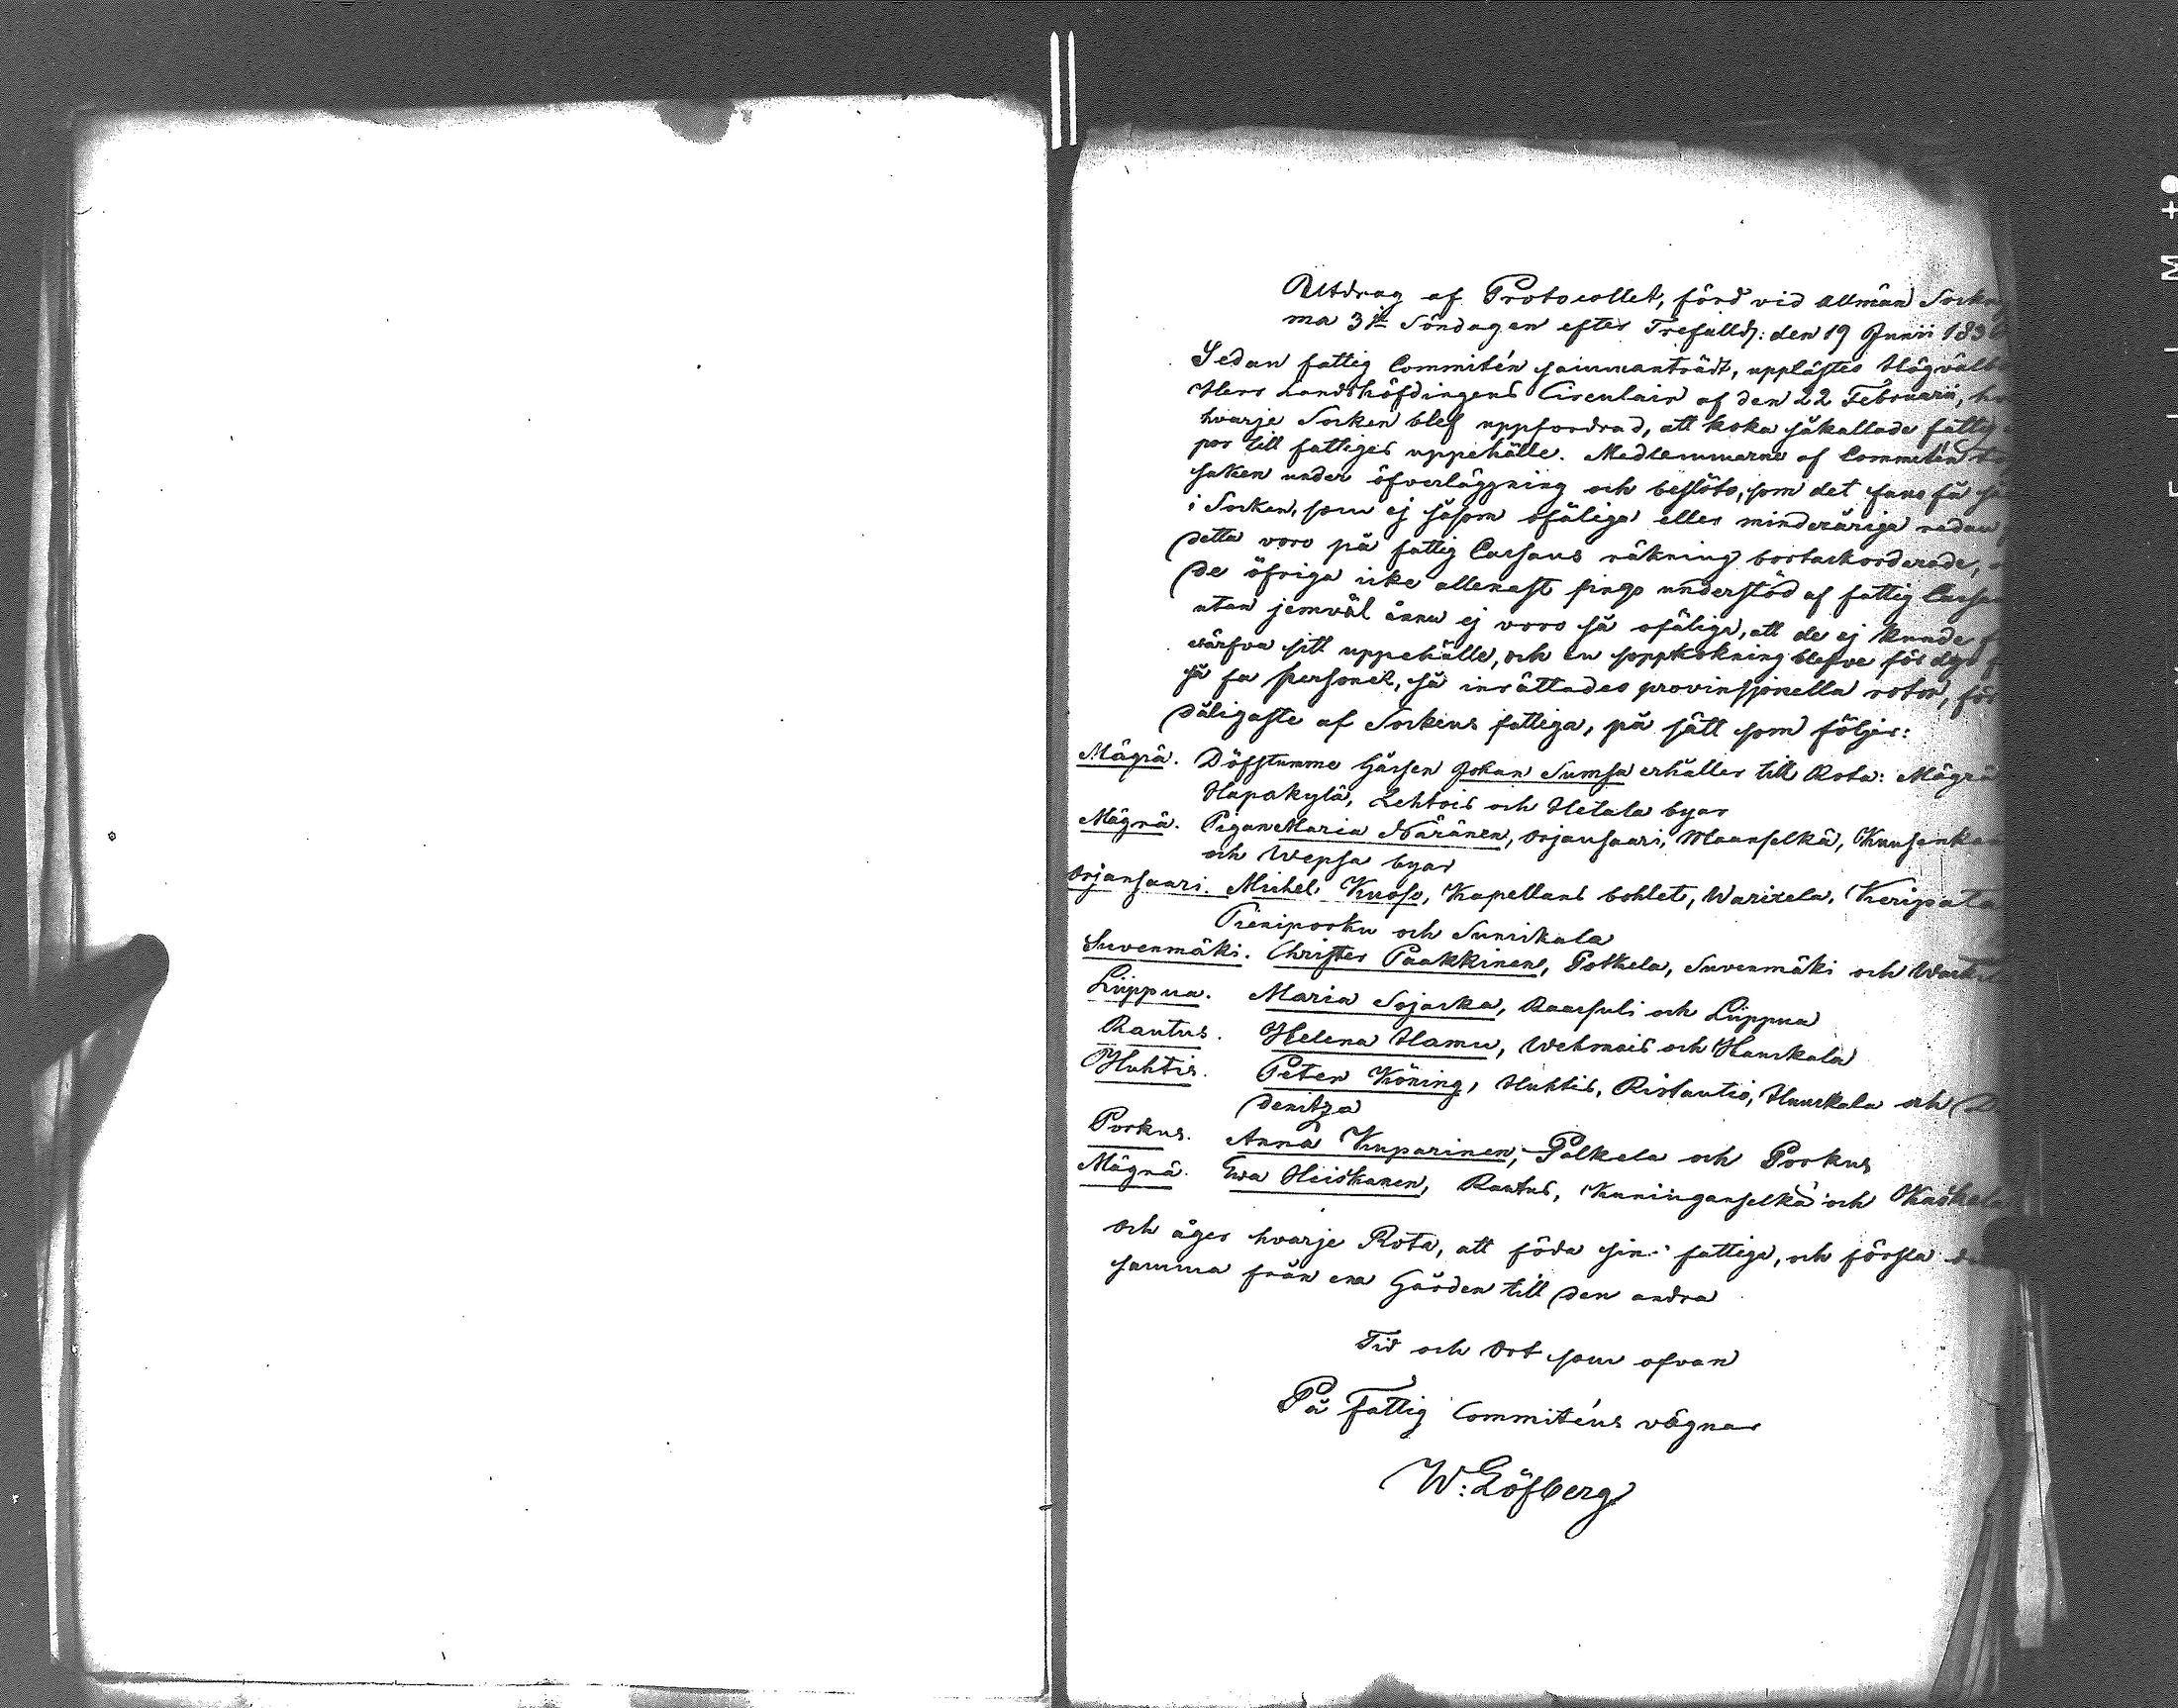 Utdrag af Protocollet, förd vid Allmän Sockn
ma 3je Söndagen efter Trefalldh: den 19 Junii 1836
Sedan fattig Commitén sammanträdt, upplästes Högvälb
Herr Landshöfdingens Circulair af den 22 Februarii,
hvarje Socken blef uppfordrad, att koka såkallade fattig
por till fattiges uppehälle. Medlemmarne af Commitén
saken under öfverläggning och beslöto, som det fans få
i Socken, som ej såsom ofälige eller minderårige redan
detta voro på fattig Cassans räkning bortackorderade,
de öfriga icke allenast fingo understöd af fattig Cassa
utan jemväl ännu ej voro så ofälige, att de ej kunde
värfva sitt uppehälle, och en soppkokning blefve för dyr
så få personer, så inrättades provinsionella rotor, för
dåligaste af Sockens fattiga, på sätt som följer:
Mägrä. Döfstumme Gåssen Johan Sumsa erhåller till Rota: Mägrä
Hapakylä, Lehtois och Hetala byar
Mägrä. Pigan Maria Näränen, Orjansaari, Maanselkä, Kuusenka
och Wepsa byar
Orjansaari. Michel Kuosa, Kapellans bohlet, Warixela, Keripata
Pieniporku och Sunikala
Suvenmäki. Christer Paakkinen, Potkela, Suvenmäki och
Liippua. Maria Sojacka, Raasuli och Liippua
Rautus. Helena Hamu, Wehmais och Haukala
Huhtis. Peter Köning, Huhtis, Ristautio, Huuskala och
denitza
Porkus. Anna Kuparinen, Palkela och Porkus
Mägrä. Ewa Heiskanen, Rautus, Kuninganselkä och Kaskela
och äger hvarje Rota, att föda sin fattige, och förssla
samma från ena Gården till den andra
Tid och Ort som ofvan
På Fattig Commiténs vägnar
W: Löfberg